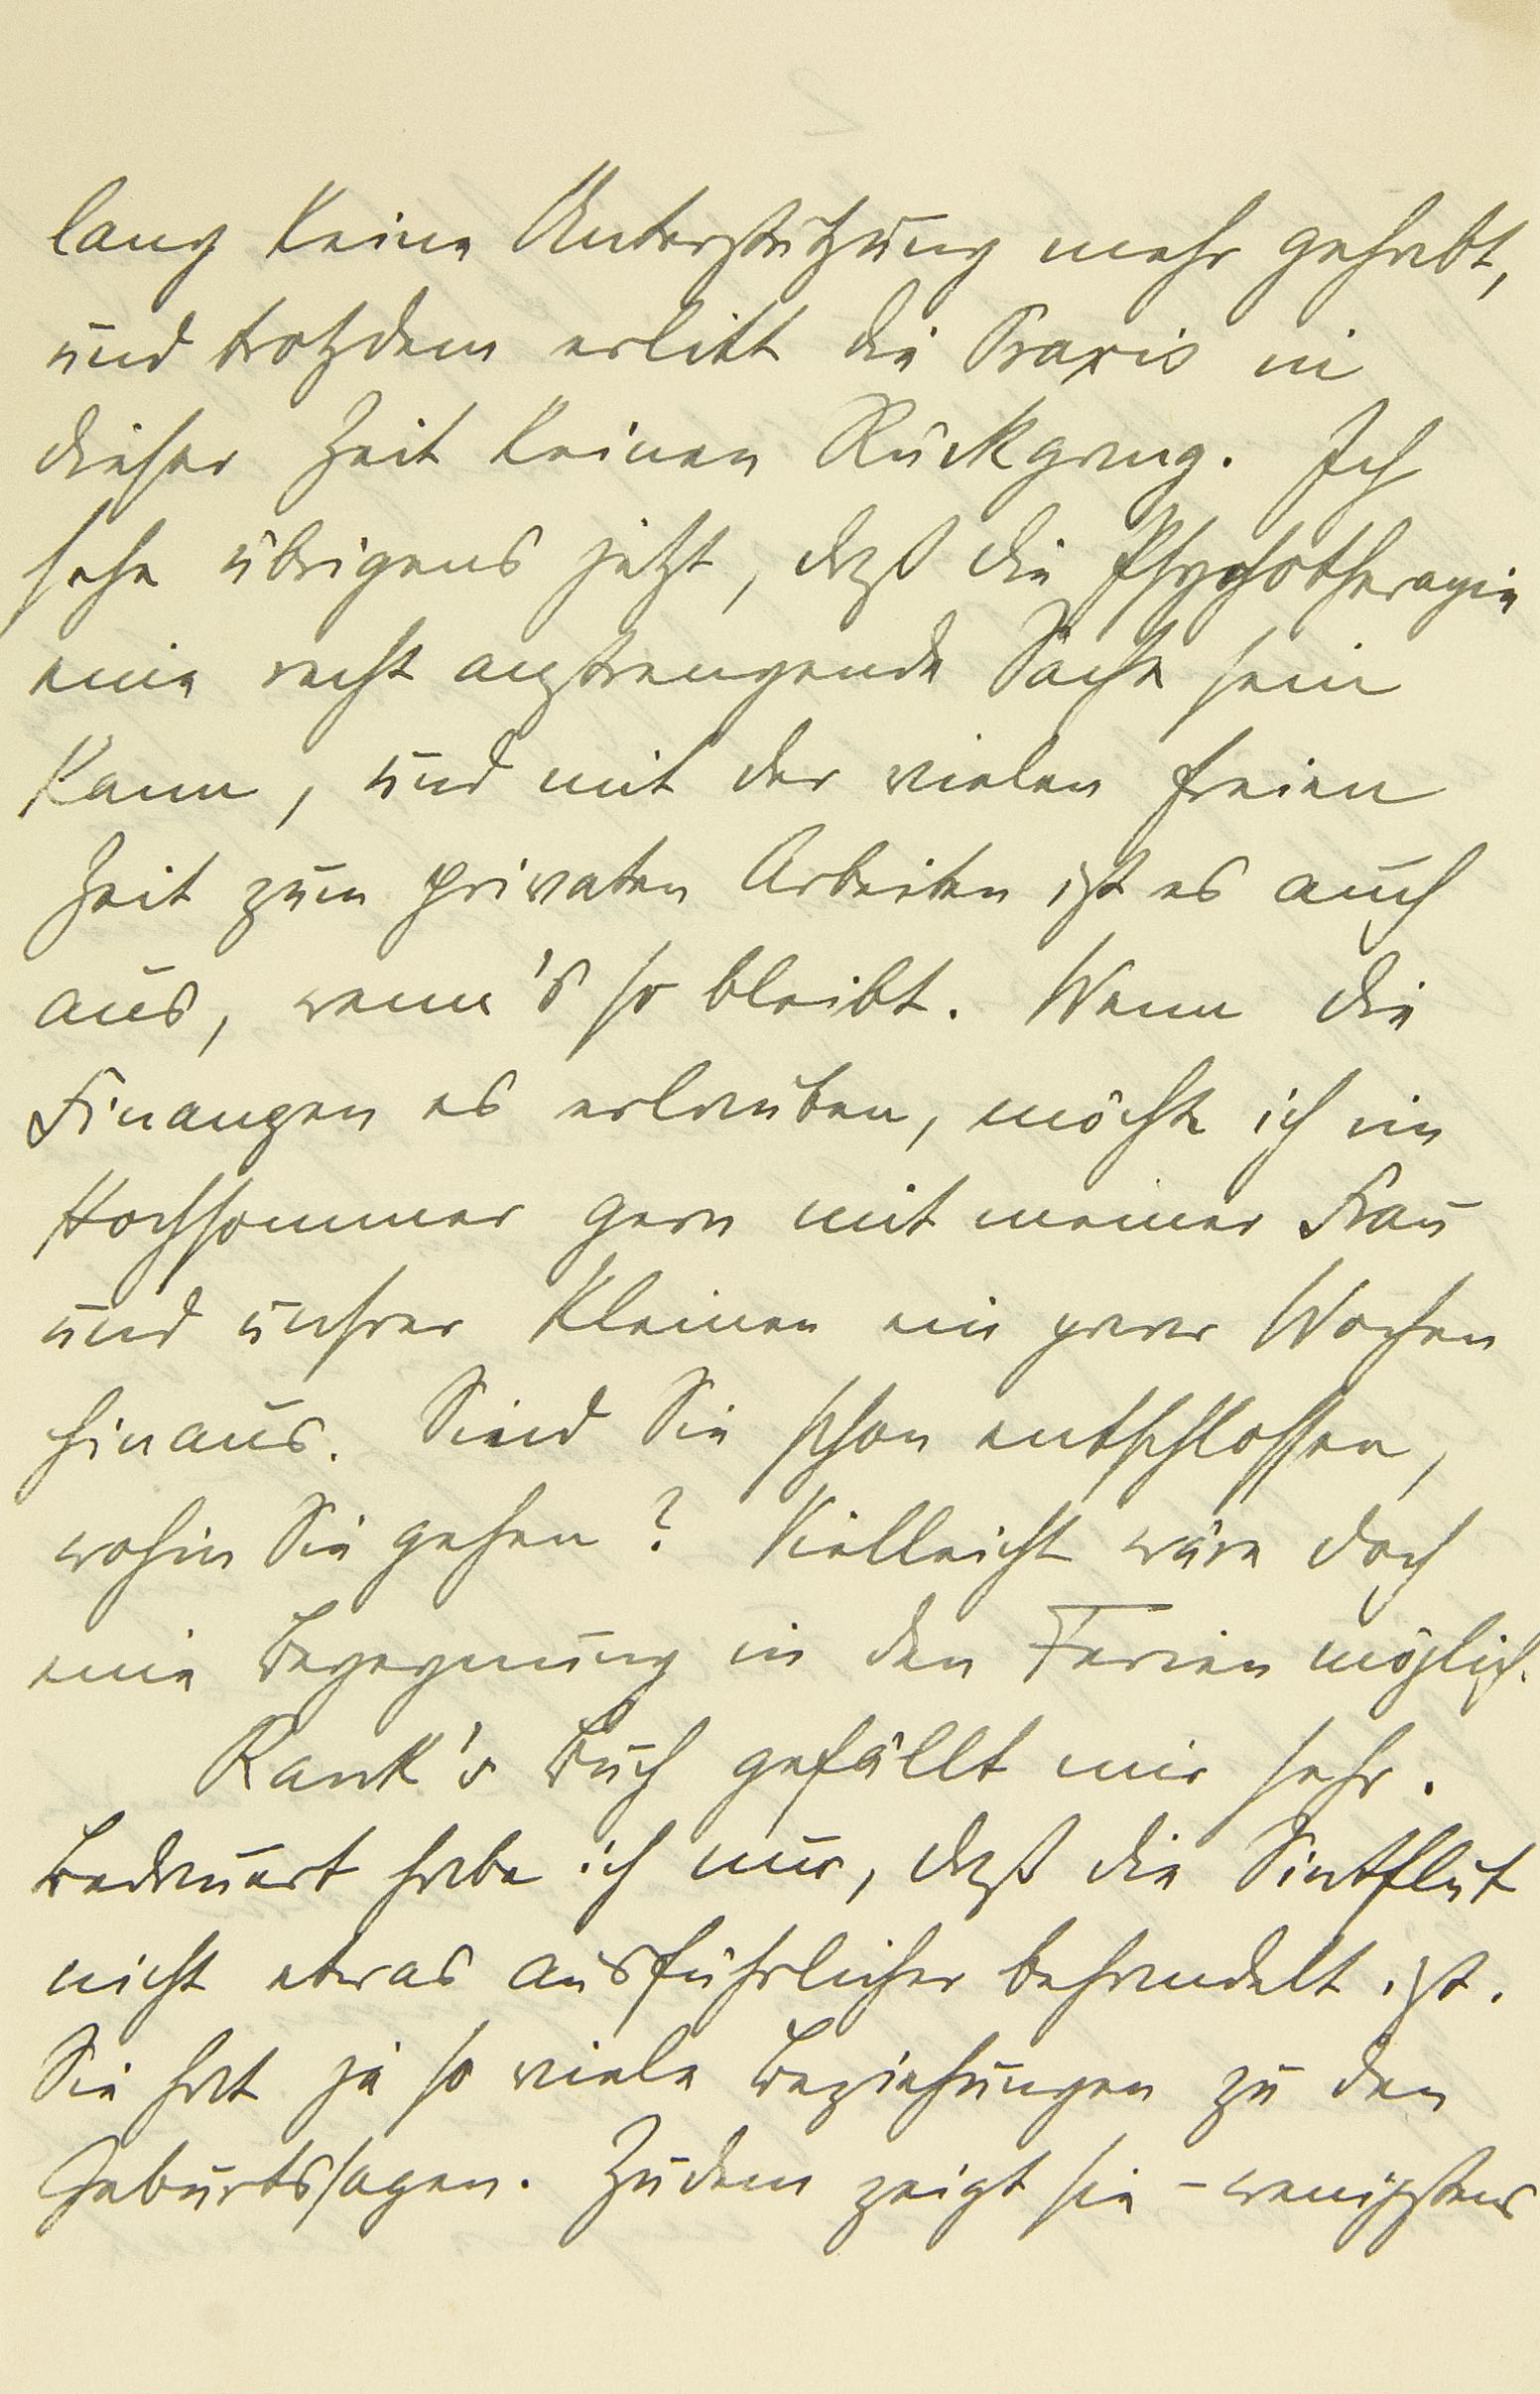 lang keine Unterstützung mehr gehabt,
und trotzdem erlitt die Praxis in
dieser Zeit keinen Rückgang. Ich
sehe übrigens jetzt, daß die Psychotherapie
eine recht anstrengende Sache sein
kann, und mit der vielen freien
Zeit zum privaten Arbeiten ist es auch
aus, wenn's so bleibt. Wenn die
Finanzen es erlauben, möchte ich im
Hochsommer gern mit meiner Frau
und unsrer Kleinen ein paar Wochen
hinaus. Sind Sie schon entschlossen,
wohin Sie gehen? Vielleicht wäre doch
eine Begegnung in den Ferien möglich.
Rank's Buch gefällt mir sehr.
Bedauert habe ich nur, daß die Sintflut
nicht etwas ausführlicher behandelt ist.
Sie hat ja so viele Beziehungen zu den
Geburtssagen. Zudem zeigt sie – wenigstens